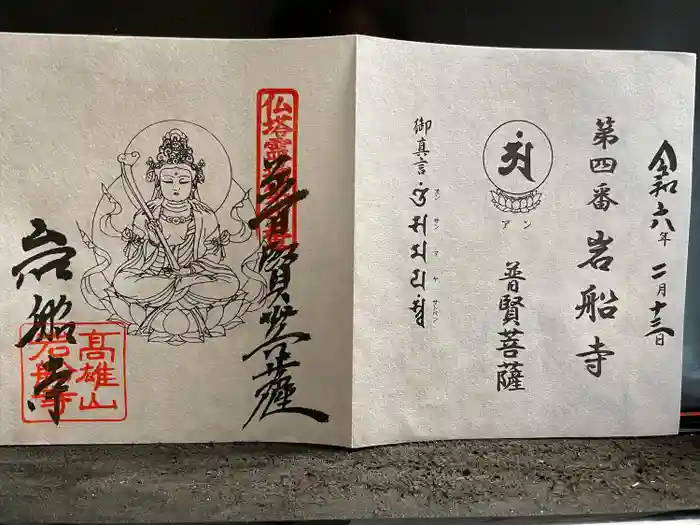 令和六年 二月十三日
第四番 岩船寺
アン
普賢菩薩
御真言
オン サン マ ヤ サトバン
普賢菩薩
岩船寺
高雄山
岩船寺